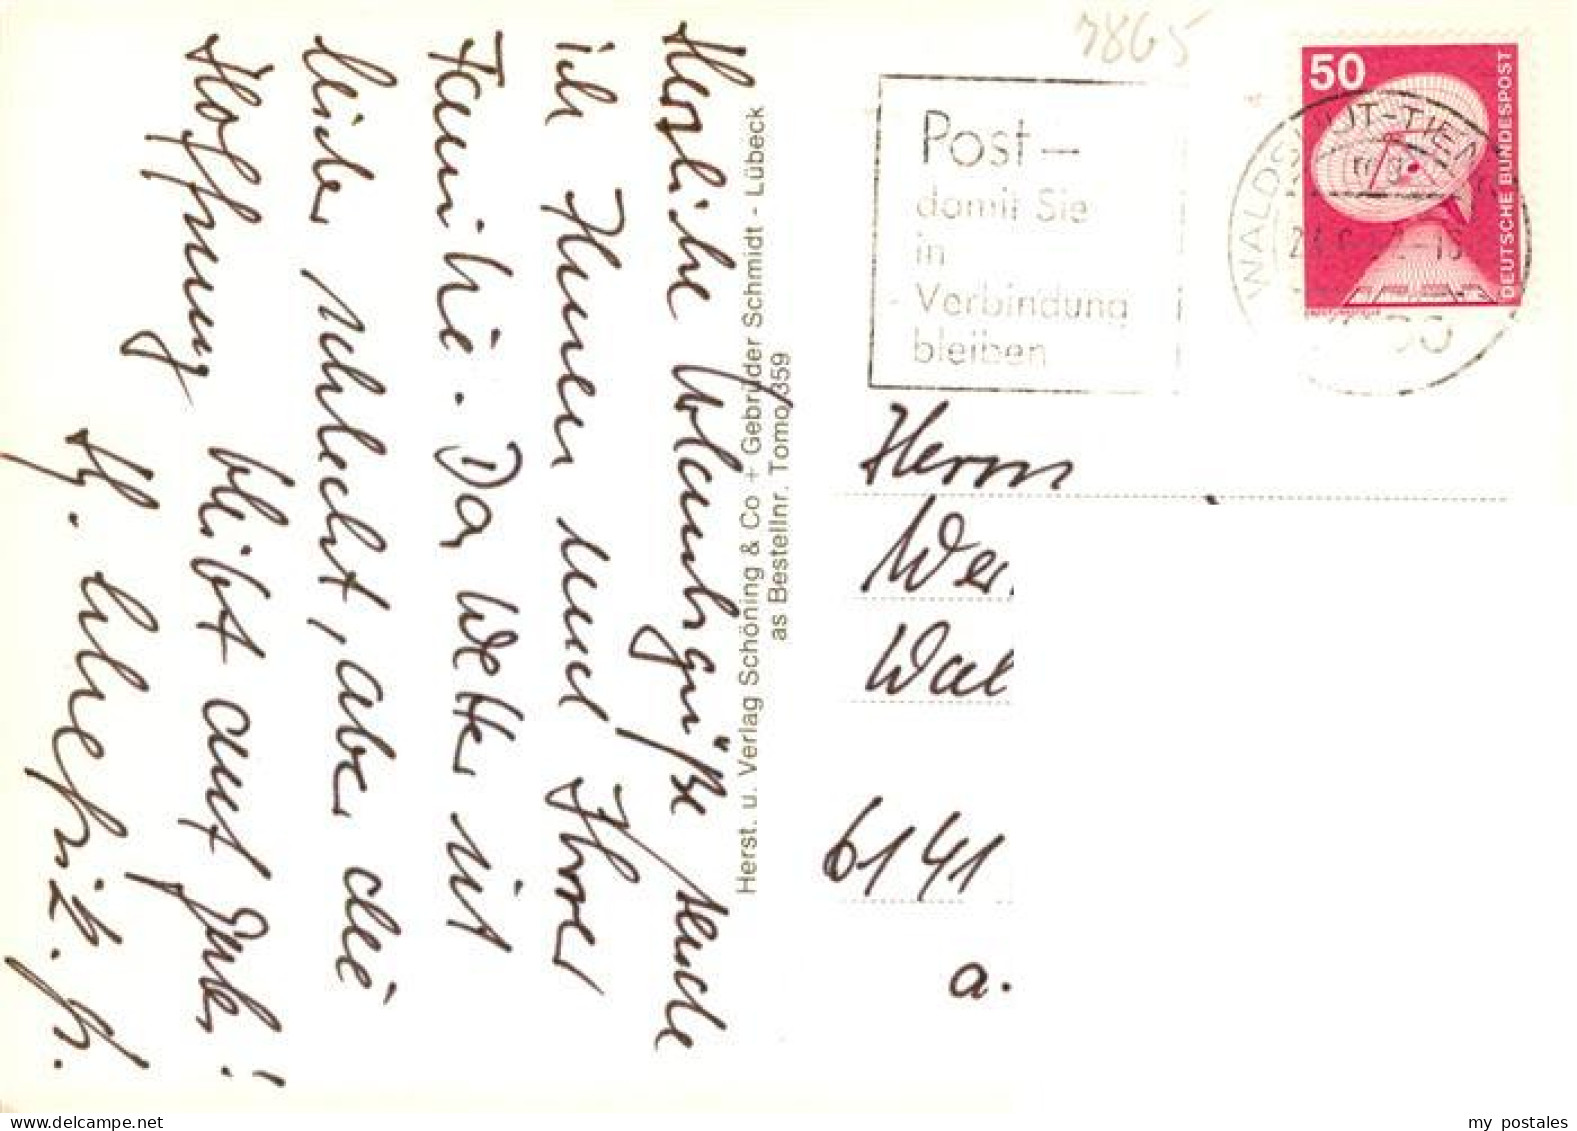 Herzliche Urlaubsgrüße sende
ich Ihnen und Ihrer
Familie. Das Wetter ist
leider schlecht, aber die
Hoffnung bleibt auf Juli!
Herst. u. Verlag Schöning & Co + Gebrüder Schmidt - Lübeck
as Bestellnr. Tomo 359
7865
Post –
damit Sie
in
Verbindung
bleiben
WALDSHUT-TIEN
mg
50
DEUTSCHE BUNDESPOST
Herrn
Wer
Wal
6141
a.
my postales